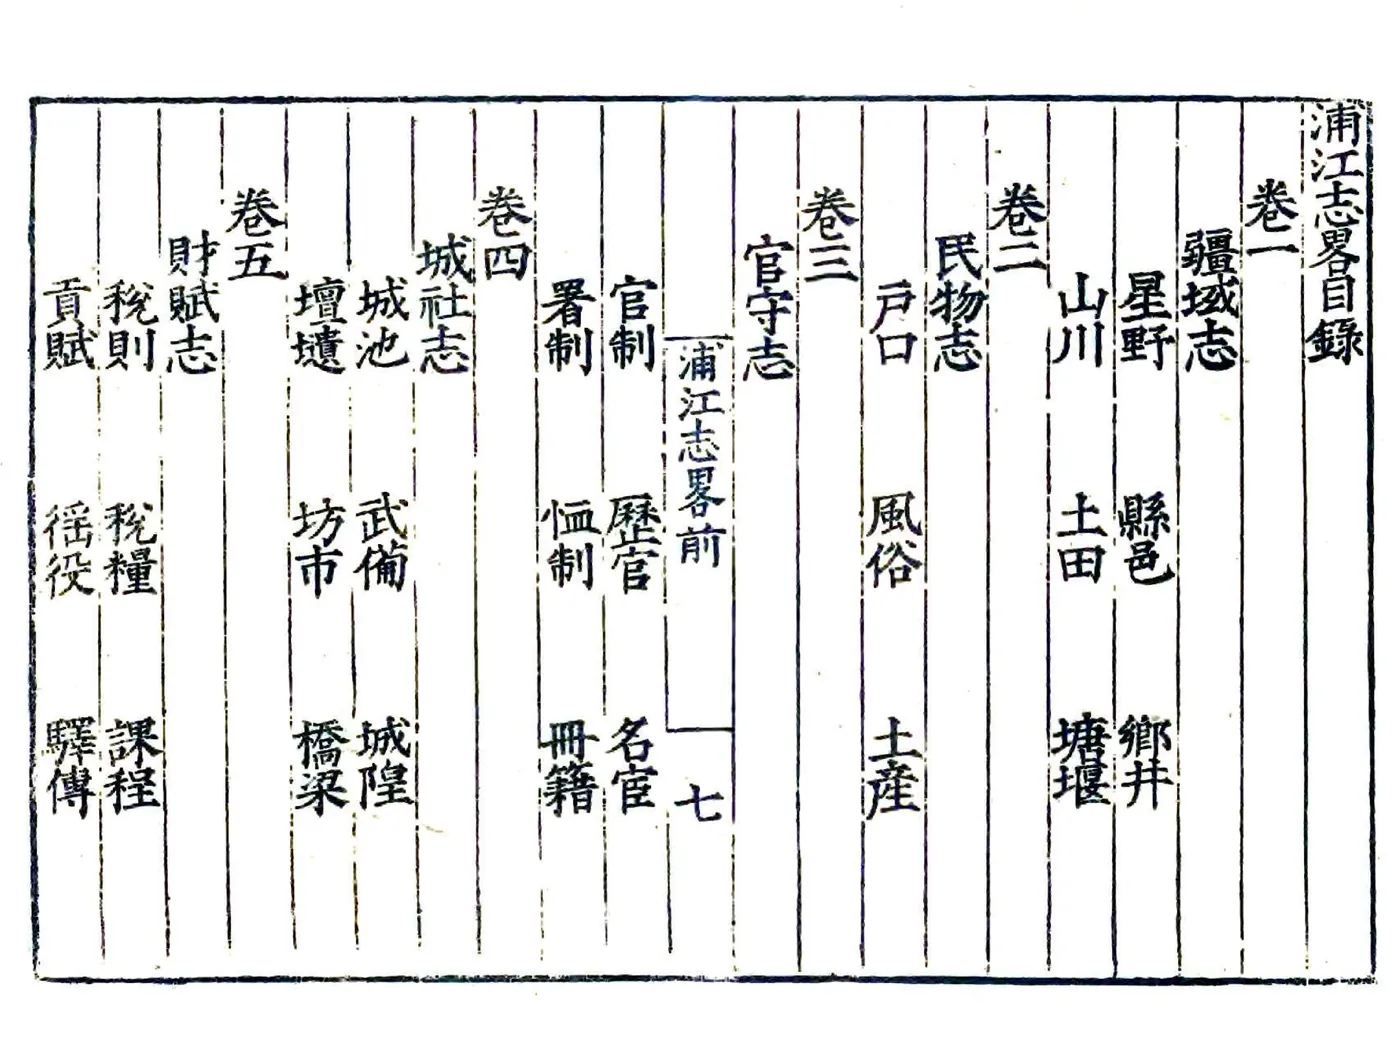 浦江志畧目錄
卷一
疆域志
星野 縣邑 鄉井
山川 土田 塘堰
卷二
民物志
戸口 風俗 土産
卷三
官守志
浦江志畧前 七
官制 歷官 名宦
署制 恤制 冊籍
卷四
城社志
城池 武備 城隍
壇壝 坊市 橋梁
卷五
財賦志
稅則 稅糧 課程
貢賦 徭役 驛傳